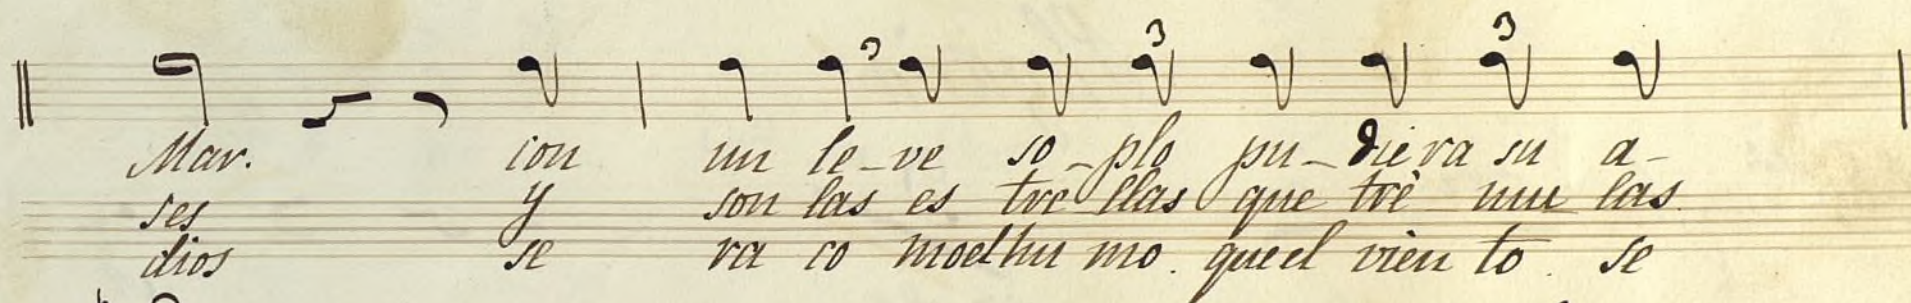 3 3 3
Mar. ion un le-ve so-plo pu-diera su a-
ses y son las es tre llas que trè mu las
dios se ra co moelhu mo. queel vien to. se